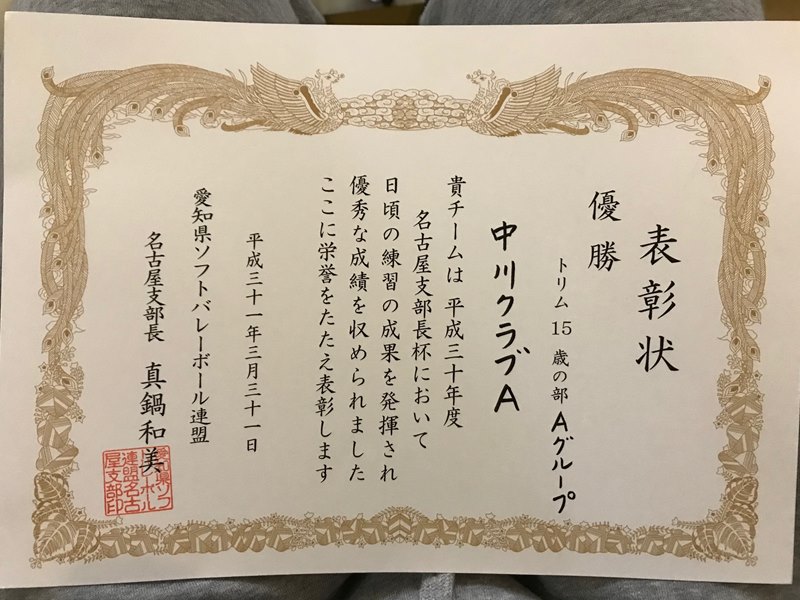 表彰状
優勝
トリム 15 歳の部 Aグループ
中川クラブA
貴チームは 平成三十年度
名古屋支部長杯において
日頃の練習の成果を発揮され
優秀な成績を収められました
ここに栄誉をたたえ表彰します
平成三十一年三月三十一日
愛知県ソフトバレーボール連盟
名古屋支部長 真鍋和美
連盟名古
屋支部印